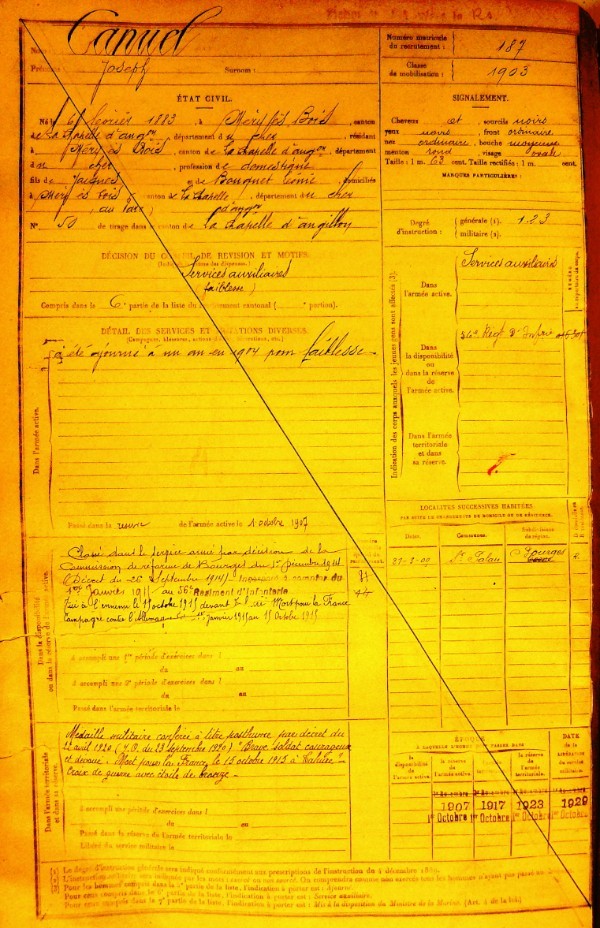 Canuel
Prénoms : Joseph Surnom :
Numéro matricule
du recrutement : 187
Classe
de mobilisation : 1903
ÉTAT CIVIL.
Né le 6 février 1883 à Méry ès Bois, canton
de La Chapelle d'angon, département du cher, résidant
à Méry ès Bois, canton de La Chapelle d'angon, département
du cher, profession de domestique
fils de Jacques et de Bouquet domiciliés
à Méry ès Bois canton de La Chapelle, département du cher
d'angon
N° 50 de tirage dans le canton de la Chapelle d'angillon
SIGNALEMENT.
Cheveux et sourcils noirs
yeux noirs, front ordinaire
nez ordinaire, bouche moyenne
menton rond, visage ovale
Taille : 1 m. 63 cent. Taille rectifiée : 1 m. cent.
MARQUES PARTICULIÈRES :
Degré
d'instruction :
générale (1). 1.2.3
militaire (2).
DÉCISION DU CONSEIL DE RÉVISION ET MOTIFS.
Services auxiliaires
faiblesse)
Compris dans la 6e partie de la liste du recrutement cantonal ( portion).
DÉTAIL DES SERVICES ET MUTATIONS DIVERSES.
a été ajourné à un an en 1904 pour faiblesse
Dans l'armée active.
Passé dans la réserve de l'armée active le 1 octobre 1907
Indication des corps auxquels les jeunes gens sont affectés (3).
Dans
l'armée active.
Services auxiliaires
Dans
la disponibilité
ou dans la réserve
de
l'armée active.
Dans l'armée
territoriale
et dans
sa réserve.
LOCALITÉS SUCCESSIVES HABITÉES
PAR SUITE DE CHANGEMENTS DE DOMICILE OU DE RÉSIDENCE.
Dates. Communes. Subdivisions
de région.
St Palais Bourges
Classé dans le service armé par décision de la
Commission de réforme de Bourges du 1er Décembre 1914
(Décret du 26 Septembre 1914)
1er Janvier 1915 au 56e Régiment d'Infanterie
Tué à l'ennemi le 15 octobre 1915 devant Mort pour la France
Campagne contre l'Allemagne du 1er janvier 1915 au 15 Octobre 1915
Dans la disponibilité
ou dans la réserve de l'armée active.
A accompli une 1re période d'exercices dans l
du au
A accompli une 2e période d'exercices dans l
du au
Passé dans l'armée territoriale le
Médaille militaire conférée à titre posthume par décret du
avril 1920 (J.O. du 23 septembre 1920) "Brave soldat courageux
et dévoué. Mort pour la France, le 15 octobre 1915 à Tahure."
Croix de guerre avec étoile de bronze.
Dans l'armée territoriale
et dans sa réserve.
A accompli une période d'exercices dans l
du au
Passé dans la réserve de l'armée territoriale le
Libéré du service militaire le
ÉPOQUE
À LAQUELLE L'HOMME DOIT PASSER DANS
la
disponibilité
de
l'armée active.
la réserve
de
l'armée active.
l'armée
territoriale.
la réserve
de
l'armée
territoriale.
DATE
de la
LIBÉRATION
du
service
militaire.
1907 1917 1923 1929
1er Octobre 1er Octobre 1er Octobre 1er Octobre
Le degré d'instruction générale sera indiqué conformément aux prescriptions de l'instruction du 4 décembre 1889.
Pour les hommes compris dans la 5e partie de la liste, l'indication à porter est : Ajourné
Pour ceux compris dans la 6e partie de la liste, l'indication à porter est : Service auxiliaire.
Pour ceux compris dans la 7e partie de la liste, l'indication à porter est : Mis à la disposition du Ministre de la Marine (Art. 4 de la loi.)